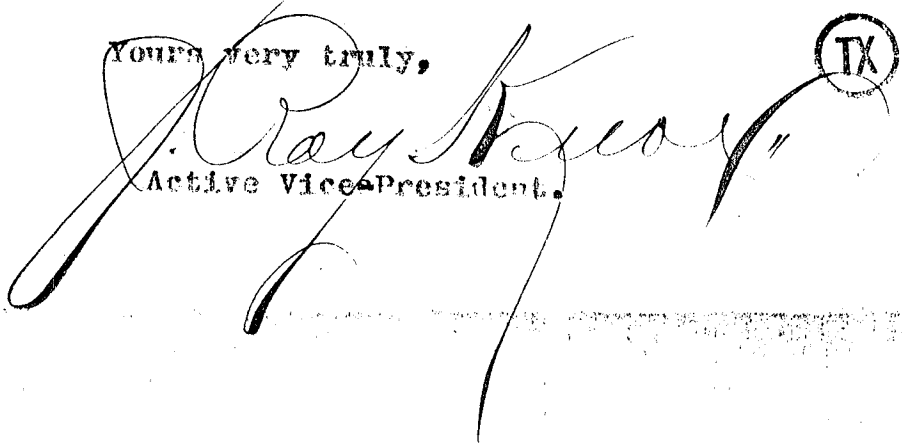 Yours very truly,
TX
J. Roy Knox
Active Vice-President.